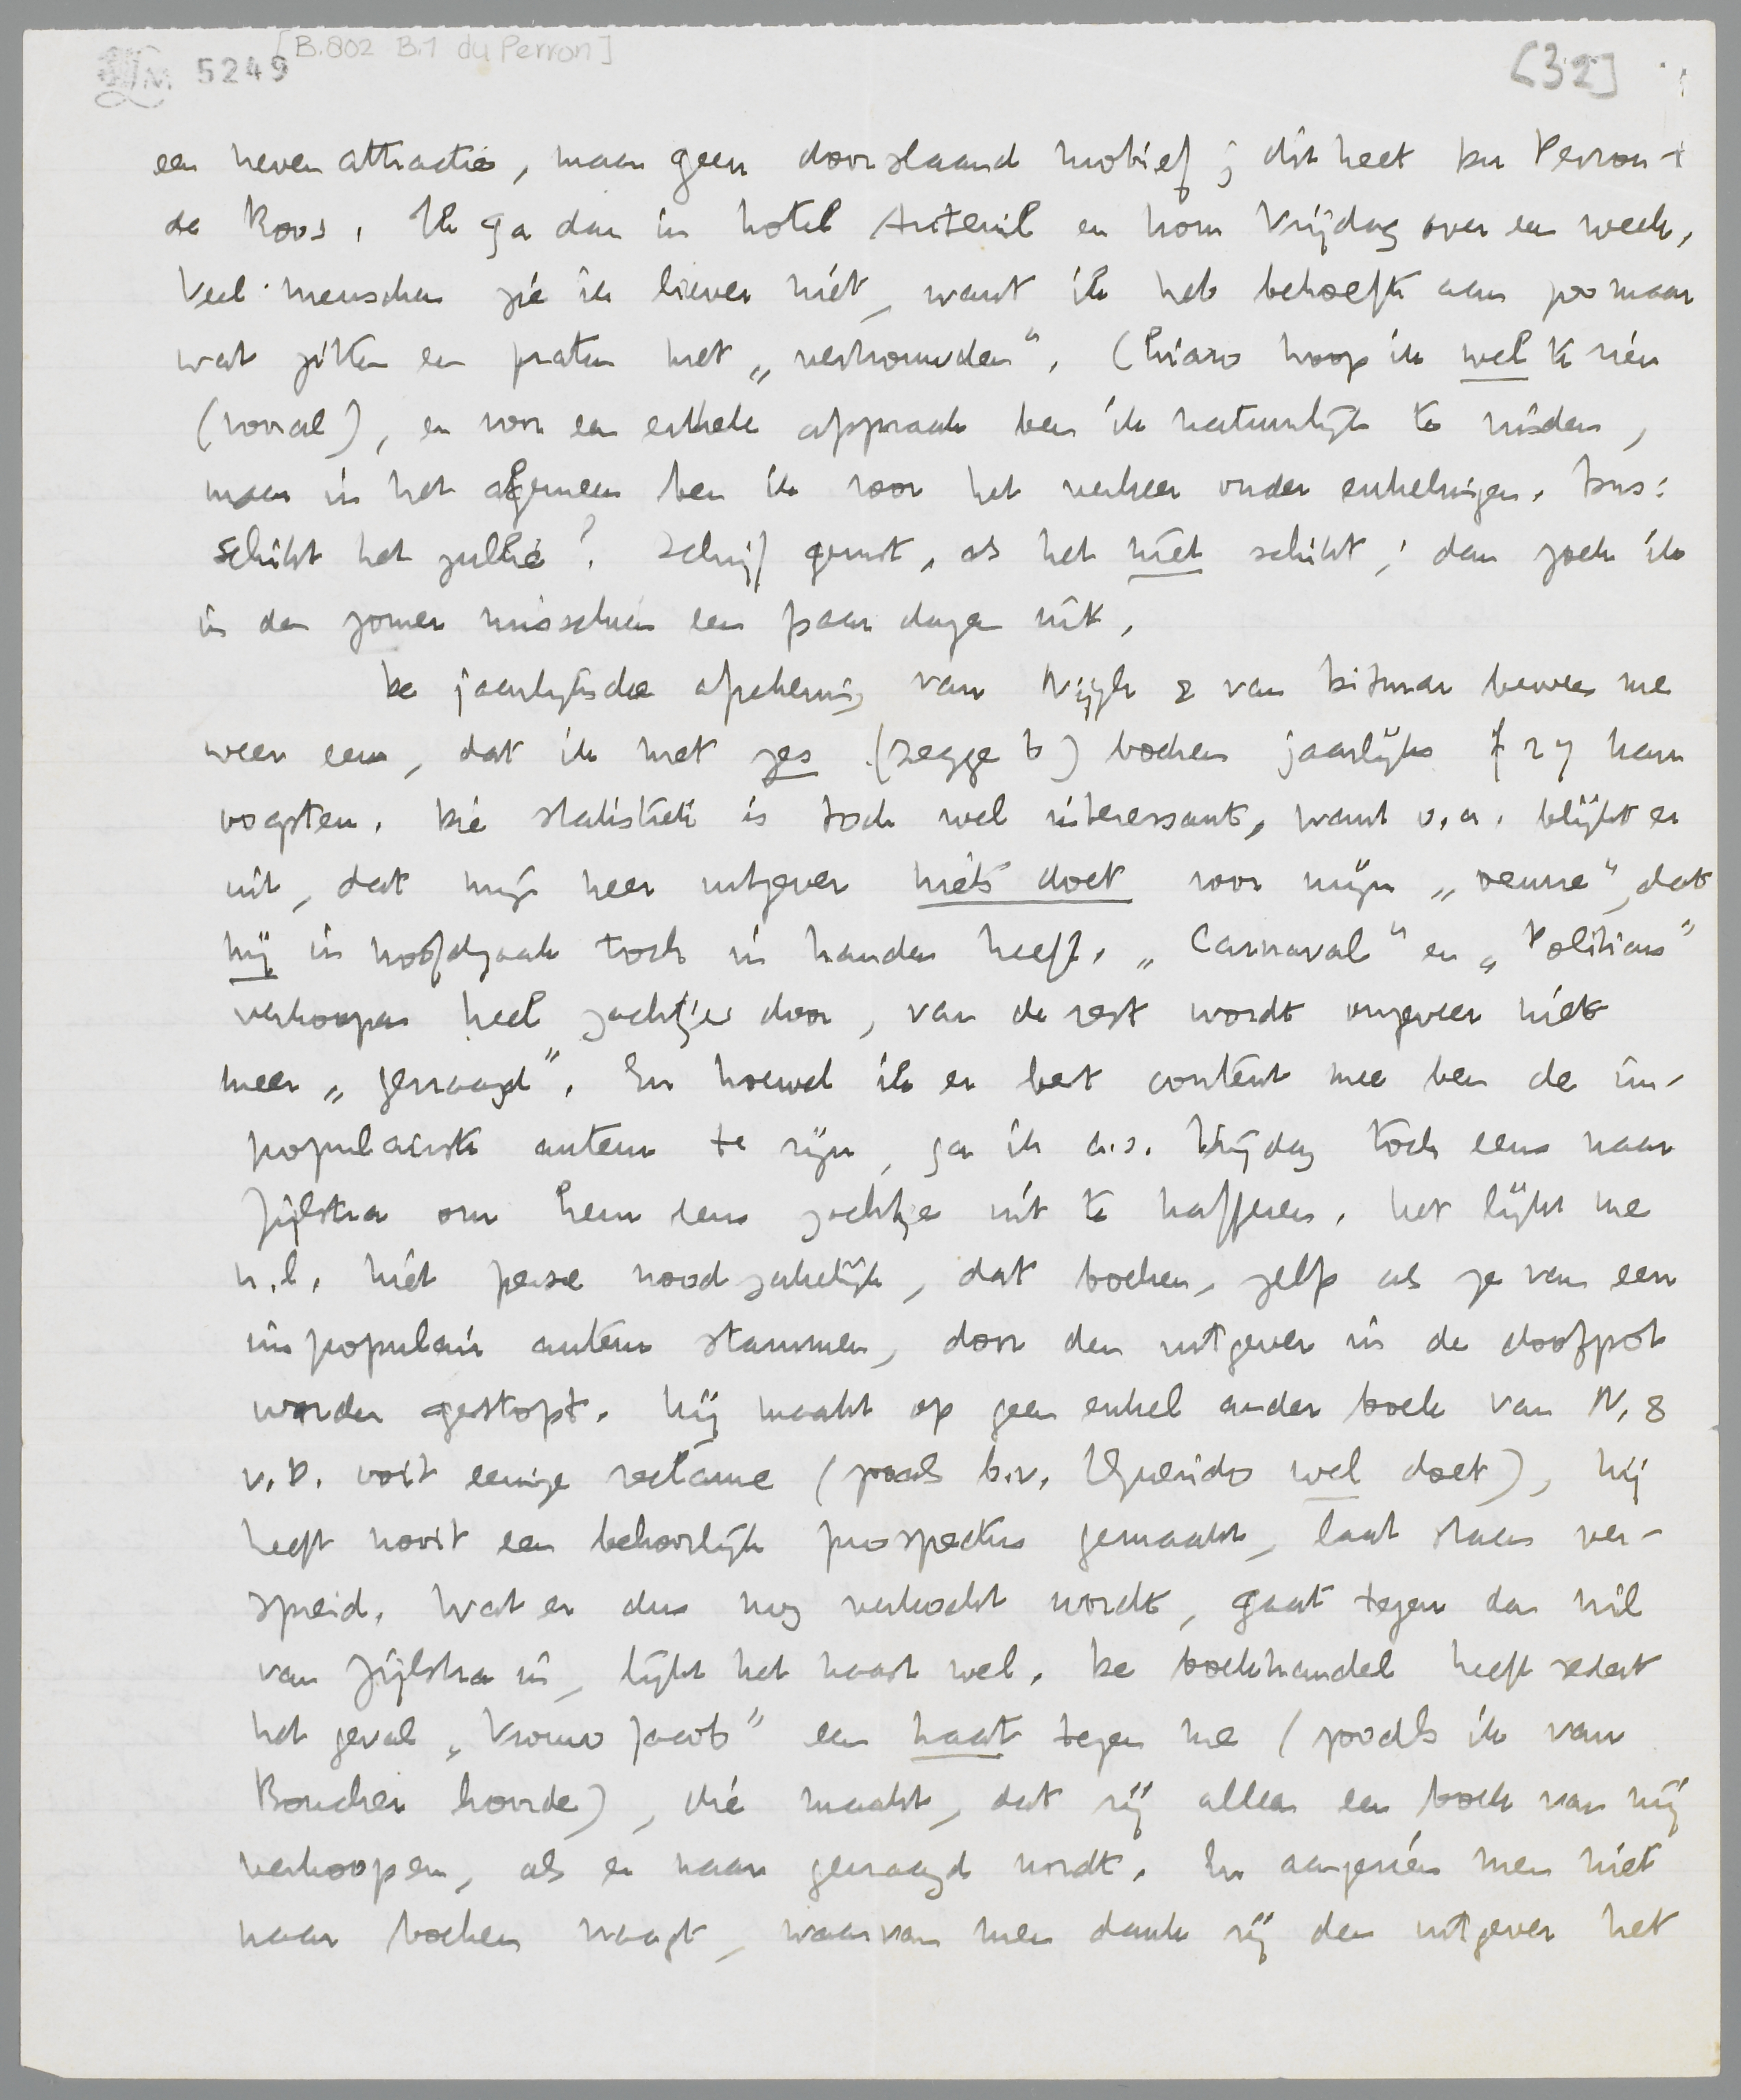 [B.802 B.1 du Perron]
5249
[32]
een neven attractie, maar geen doorslaand motief; dit heet Du Perron +
de Roos. Ik ga dan in hotel Auteuil en kom Vrijdag over een week.
Veel menschen zie ik liever niet, want ik heb behoefte aan zoo maar
wat zitten en praten met „vertrouwden". Chiaro hoop ik wel te zien
(vooral), en voor een enkele afspraak ben ik natuurlijk te vinden,
maar in het algemeen ben ik voor het verkeer onder enkelingen. Dus:
schikt het jullie? Schrijf gerust, als het niet schikt; dan zoek ik
in den zomer misschien een paar dagen uit.
De jaarlijksche afrekening van Nijgh & van Ditmar bewees me
weer eens, dat ik met zes (zegge 6) boeken jaarlijks f 27 kan
oogsten. Die statistiek is toch wel interessant, want o.a. blijkt er
uit, dat mijn heer uitgever niets doet voor mijn „oeuvre", dat
hij in hoofdzaak toch in handen heeft. „Carnaval" en „Politicus"
verkoopen heel zachtjes door, van de rest wordt ongeveer niets
meer „gevraagd". En hoewel ik er best content mee ben de im-
populairste auteur te zijn, ga ik a.s. Vrijdag toch eens naar
Zijlstra om hem eens zachtjes uit te kafferen. Het lijkt me
n.l. niet perse noodzakelijk, dat boeken, zelfs als ze van een
impopulair auteur stammen, door den uitgever in de doofpot
worden gestopt. Hij maakt op geen enkel ander boek van N. &
v.D. ooit eenige reclame (zooals b.v. Querido wel doet), hij
heeft nooit een behoorlijk prospectus gemaakt, laat staan ver-
spreid. Wat er dus nog verkocht wordt, gaat tegen den wil
van Zijlstra in, lijkt het haast wel. De boekhandel heeft sedert
het geval „Vrouw Jacob" een haat tegen me (zooals ik van
Boucher hoorde), die maakt, dat zij alleen een boek van mij
verkoopen, als er naar gevraagd wordt. En aangezien men niet
naar boeken vraagt, waarvan men dank zij den uitgever het